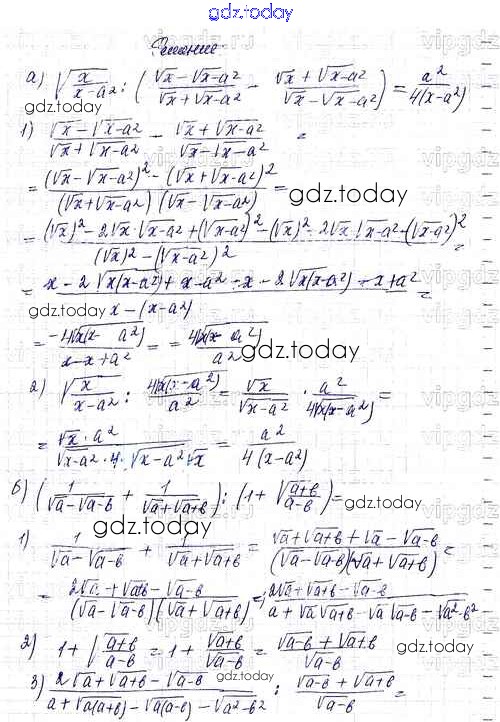 gdz.today
Решение
а) √(x/(x-a²)) : ((√x - √(x-a²))/(√x + √(x-a²)) - (√x + √(x-a²))/(√x - √(x-a²))) = a²/(4(x-a²))
1) (√x - √(x-a²))/(√x + √(x-a²)) - (√x + √(x-a²))/(√x - √(x-a²)) =
= ((√x - √(x-a²))² - (√x + √(x-a²))²)/((√x + √(x-a²))(√x - √(x-a²))) =
gdz.today
= ((√x)² - 2√x·√(x-a²) + (√(x-a²))² - (√x)² - 2√x·√(x-a²) - (√(x-a²))²)/((√x)² - (√(x-a²))²) =
= (x - 2√(x(x-a²)) + x - a² - x - 2√(x(x-a²)) - x + a²)/(x - (x-a²)) =
gdz.today
= (-4√(x(x-a²)))/(x - x + a²) = - (4√(x(x-a²)))/a²
gdz.today
2) √(x/(x-a²)) : (4√(x(x-a²)))/a² = √x/√(x-a²) · a²/(4√(x(x-a²))) =
= (√x · a²)/(√(x-a²) · 4 · √(x-a²) · √x) = a²/(4(x-a²))
б) (1/(√a - √(a-b)) + 1/(√a + √(a+b))) : (1 + √((a+b)/(a-b))) =
gdz.today
1) 1/(√a - √(a-b)) + 1/(√a + √(a+b)) = (√a + √(a+b) + √a - √(a-b))/((√a - √(a-b))(√a + √(a+b))) =
= (2√a + √(a+b) - √(a-b))/((√a - √(a-b))(√a + √(a+b))) = (2√a + √(a+b) - √(a-b))/(a + √a√(a+b) - √a√(a-b) - √(a²-b²))
2) 1 + √((a+b)/(a-b)) = 1 + √(a+b)/√(a-b) = (√(a-b) + √(a+b))/√(a-b)
gdz.today
3) (2√a + √(a+b) - √(a-b))/(a + √(a(a+b)) - √(a(a-b)) - √(a²-b²)) : (√(a-b) + √(a+b))/√(a-b) =
gdz.today